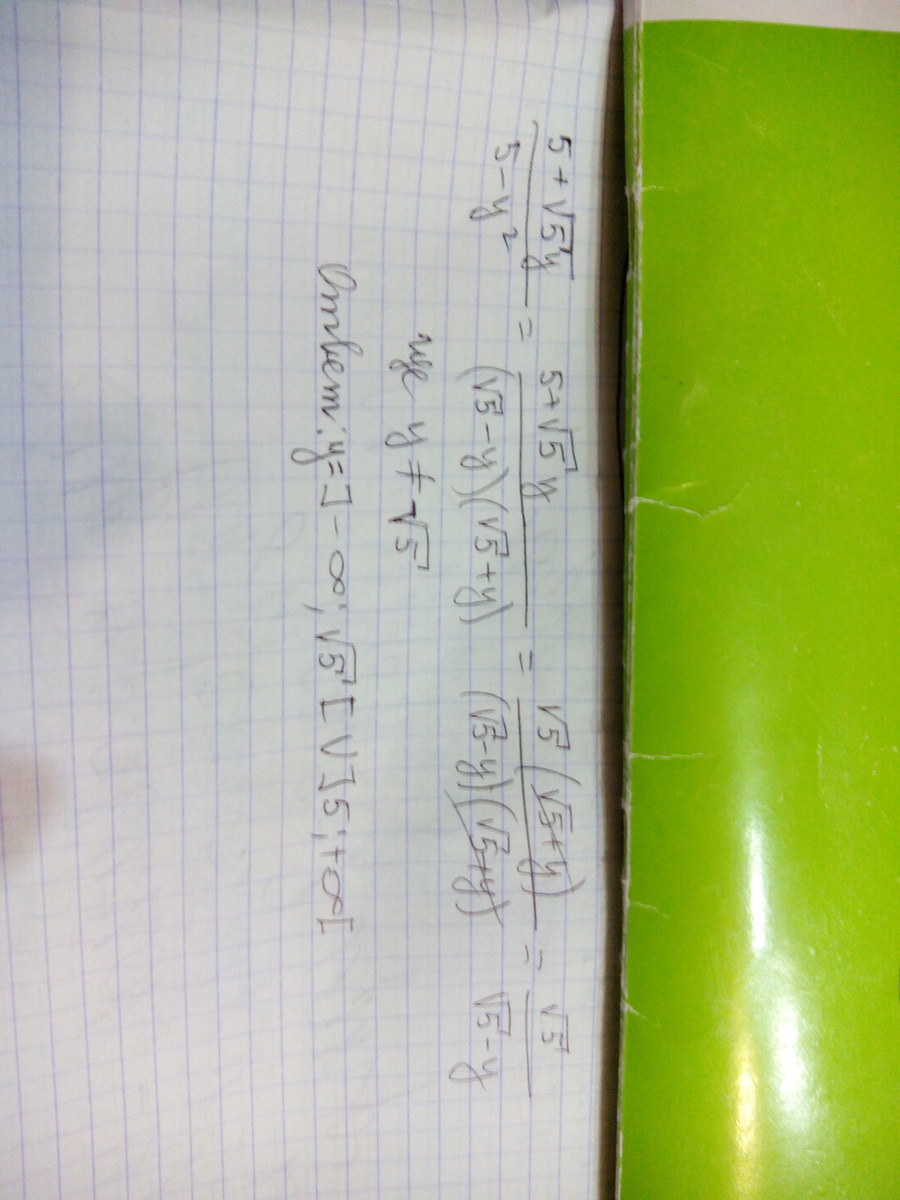 5+√5y / 5-y² = 5+√5y / (√5-y)(√5+y) = √5(√5+y) / (√5-y)(√5+y) = √5 / √5-y
где y ≠ √5
Ответ: y=]-∞; √5[ V ]5;+∞[